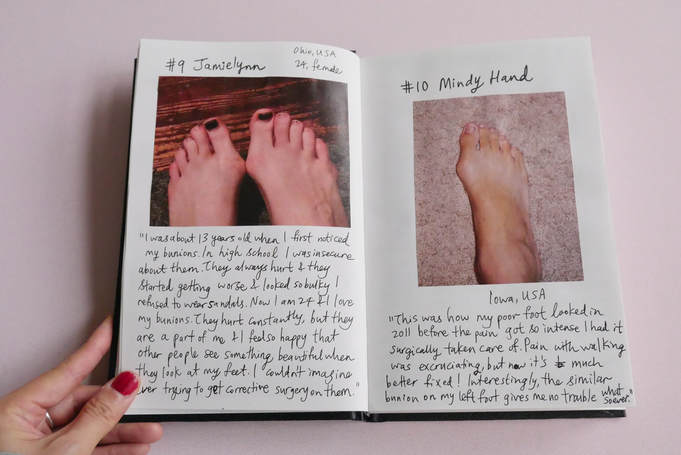 #9 Jamielynn
Ohio, USA
24, female
"I was about 13 years old when I first noticed
my bunions. In high school I was insecure
about them. They always hurt & they
started getting worse & looked so bulky I
refused to wear sandals. Now I am 24 & I love
my bunions. They hurt constantly, but they
are a part of me & I feel so happy that
other people see something beautiful when
they look at my feet. I couldn't imagine
ever trying to get corrective surgery on them."
#10 Mindy Hand
Iowa, USA
"This was how my poor foot looked in
2011 before the pain got so intense I had it
surgically taken care of. Pain with walking
was excruciating, but now it's much
better fixed! Interestingly, the similar
bunion on my left foot gives me no trouble what
soever."